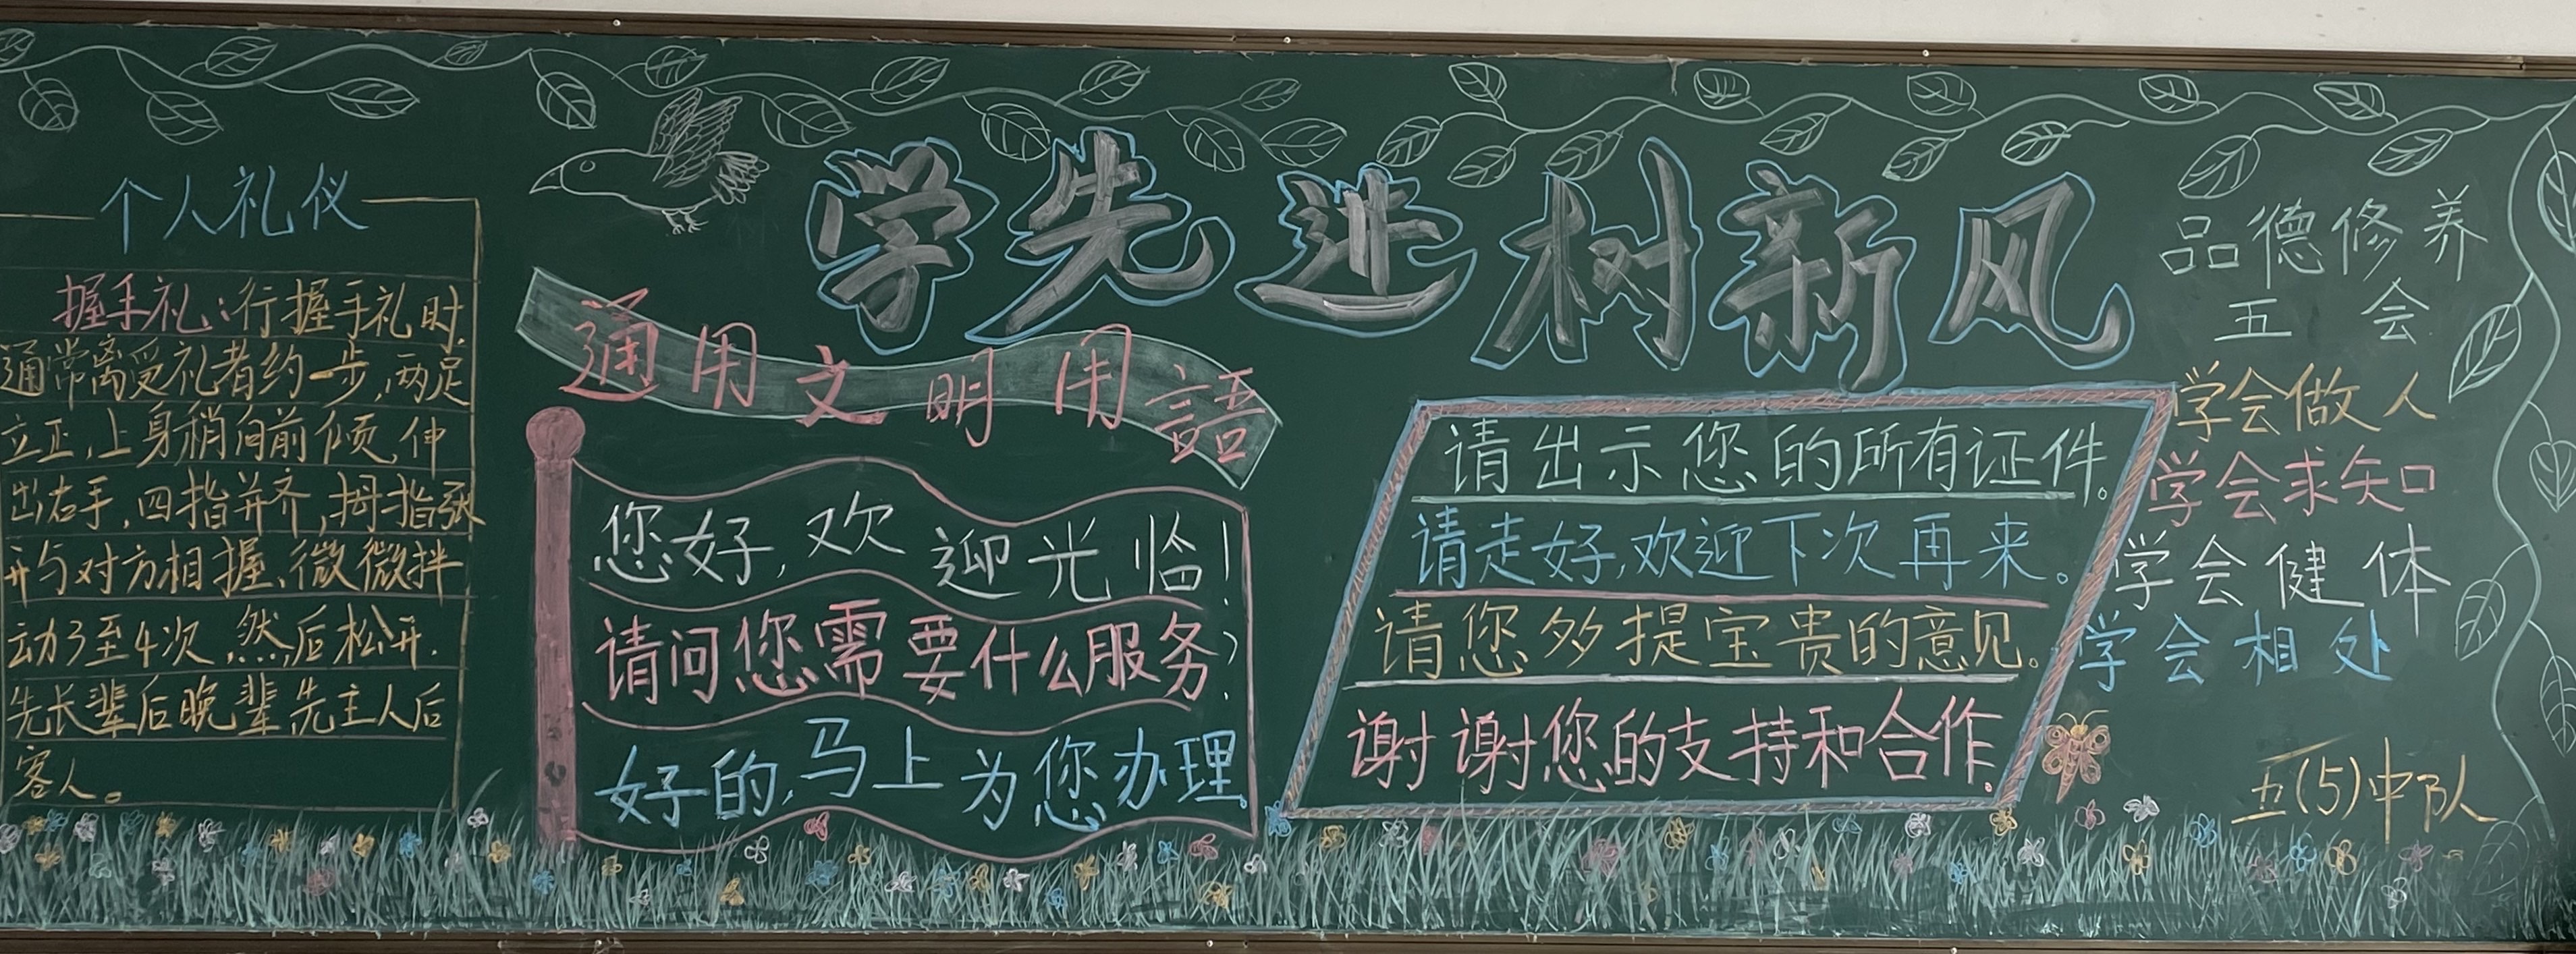 学先进树新风
个人礼仪
握手礼：行握手礼时
通常离受礼者约一步，两足
立正，上身稍向前倾，伸
出右手，四指并齐，拇指张
开与对方相握、微微拌
动3至4次，然后松开．
先长辈后晚辈，先主人后
客人。
通用文明用語
您好，欢迎光临！
请问您需要什么服务？
好的，马上为您办理。
请出示您的所有证件。
请走好，欢迎下次再来。
请您多提宝贵的意见。
谢谢您的支持和合作。
品德修养
五会
学会做人
学会求知
学会健体
学会相处
五(5)中队